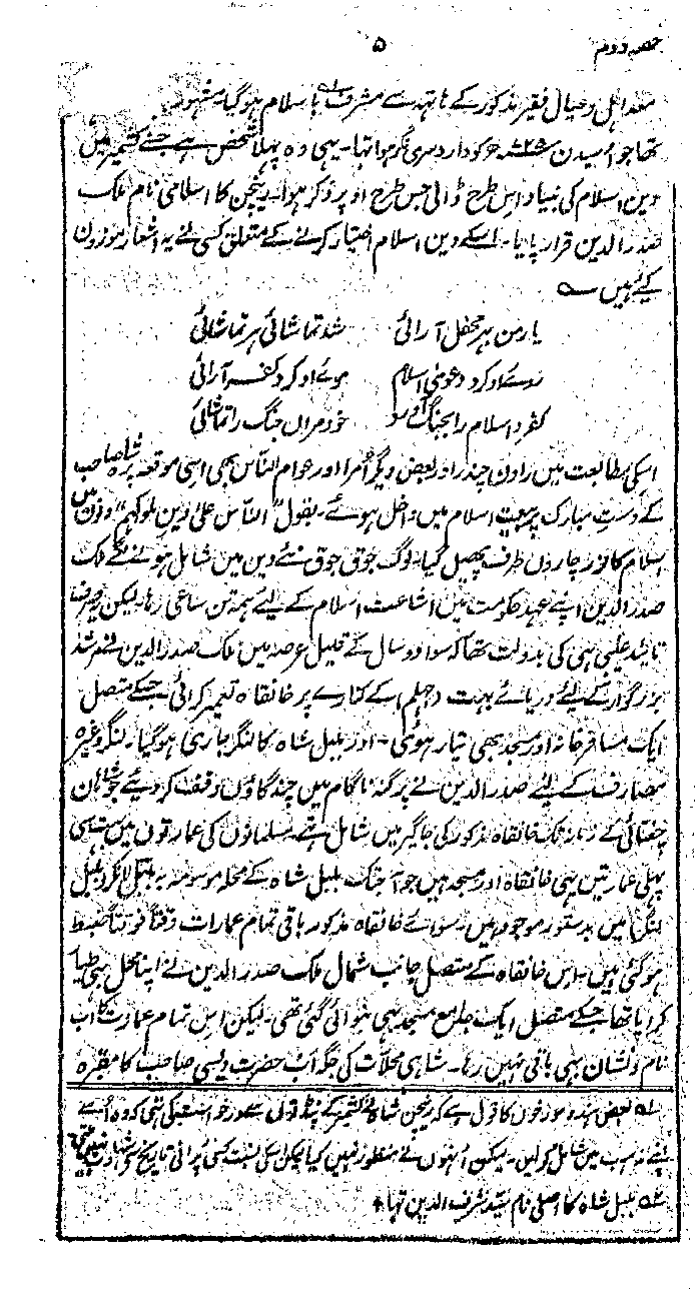 حصہ دوم ۵
معہ اہل و عیال فقیر مذکور کے ہاتھ سے مشرف باسلام ہو گیا۔ مشہور
تھا جو اُسیدن ۷۲۵ھ جو کودار دسری نگر ہوا تہا۔ یہی وہ پہلا شخص ہے جسنے کشمیر میں
دین اسلام کی بنیاد اس طرح ڈالی جس طرح اوپر ذکر ہوا۔ رینچن کا اسلامی نام ملک
صدر الدین قرار پایا۔ اسکے دین اسلام اختیار کرنے کے متعلق کسی نے یہ اشعار موزون
کئے ہیں ؎
یار من بہر محفل آرائی شد تماشائی ہر تماشائی
روئے او کرد دعوئی اسلام موئے او کرد کفر آرائی
کفر و اسلام را بجنگ آورد خود مراں جنگ را تماشائی
اسکی مطابعت میں راون چندر اور بعض دیگر اُمرا اور عوام الناس بھی اسی موقعہ پر شاہ صاحب
کے دست مبارک پر بیعت اسلام میں داخل ہوئے۔ بقول "الناس علیٰ دین ملوکہم" دونوں میں
اسلام کا نور چاروں طرف پھیل گیا۔ لوگ جوق جوق نئے دین میں شامل ہونے لگے ملک
صدر الدین اپنے عہد حکومت میں اشاعت اسلام کے لئے ہمہ تن ساعی رہا۔ لیکن یہ صرف
تائید غیبی ہی کی بدولت تھا کہ سوا دو سال کے قلیل عرصہ میں ملک صدر الدین نے مرشد
بزرگوار کے لئے دریائے بہت (جہلم) کے کنارے پر خانقاہ تعمیر کرائی۔ جسکے متصل
ایک مسافر خانہ اور مسجد بھی تیار ہوئی۔ اور بلبل شاہ کا لنگر جاری ہو گیا۔ لنگر وغیرہ
مصارف کے لئے صدر الدین نے پرگنہ ناگام میں چند گاؤں وقف کر دیئے جو شاہان
چغتائی کے زمانہ تک خانقاہ مذکور کی جاگیر میں شامل تھے۔ مسلمانوں کی عمارتوں میں سب سی
پہلی عمارتیں یہی خانقاہ اور مسجد ہیں جو آجتک بلبل شاہ کے محلہ موسومہ بہ بلبل لانکر (بلبل
لنگر) میں بدستور موجود ہیں۔ سوائے خانقاہ مذکور باقی تمام عمارات وقتاً فوقتاً ضبط
ہو گئی ہیں۔ اس خانقاہ کے متصل جانب شمال ملک صدر الدین نے اپنا محل بھی طیار
کرایا تھا جسکے متصل ایک جامع مسجد بھی بنوائی گئی تھی۔ لیکن اس تمام عمارت کا اب
نام و نشان بھی باقی نہیں رہا۔ شاہی محلات کی جگہ اب حضرت ویسی صاحب کا مقبرہ
۱ بعض ہندو مورخوں کا قول ہے کہ رینچن شاہ نے کشمیر کے پنڈتوں سے درخواست کی تھی کہ وہ اُسے
اپنے مذہب میں شامل کر لیں۔ لیکن اُنہوں نے منظور نہیں کیا لیکن اسکی نسبت کسی پرانی تاریخ کی شہادت نہیں ملتی
۲ بلبل شاہ کا اصلی نام سید شرف الدین تہا۔